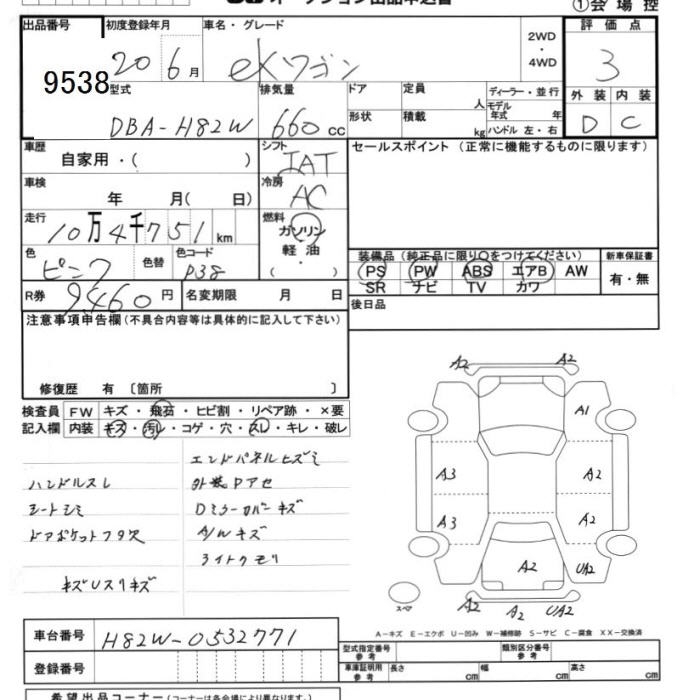 オークション出品申込書
①会場控
出品番号 初度登録年月 車名・グレード 2WD・4WD 評価点
9538 20 6月 eKワゴン 3
型式 排気量 ドア 定員 人 ディーラー・並行 外装 内装
DBA-H82W 660cc 形状 積載 kg モデル年式 年 ハンドル 左・右 D C
車歴 シフト セールスポイント (正常に機能するものに限ります)
自家用・( ) IAT
車検 冷房
年 月( 日) AC
走行 燃料
10万4千751km ガソリン・軽油・( )
色 色替 色コード 装備品(純正品に限り○をつけてください) 新車保証書
ピンク P38 PS PW ABS エアB AW 有・無
SR ナビ TV カワ
R券 9460円 名変期限 月 日 後日品
注意事項申告欄(不具合内容等は具体的に記入して下さい)
修復歴 有 〔箇所 〕
検査員 FW キズ・飛石・ヒビ割・リペア跡・×要
記入欄 内装 キズ・汚レ・コゲ・穴・スレ・キレ・破レ
エンドパネルヒズミ
ハンドルスレ 外装Pアセ
シートシミ Dミラーカバーキズ
ドアポケットフタ欠 A/Wキズ
ライトクモリ
キズUスリキズ
A2 A2
A1
A3 A2
A3 A2
A2 UA2
スペア A2 A2 UA2
A-キズ E-エクボ U-凹み W-補修跡 S-サビ C-腐食 XX-交換済
車台番号 H82W-0532771
型式指定番号 参考 類別区分番号 参考
登録番号 車庫証明用 参考 長さ cm 幅 cm 高さ cm
希望出品コーナー(コーナーは各会場により異なります。)